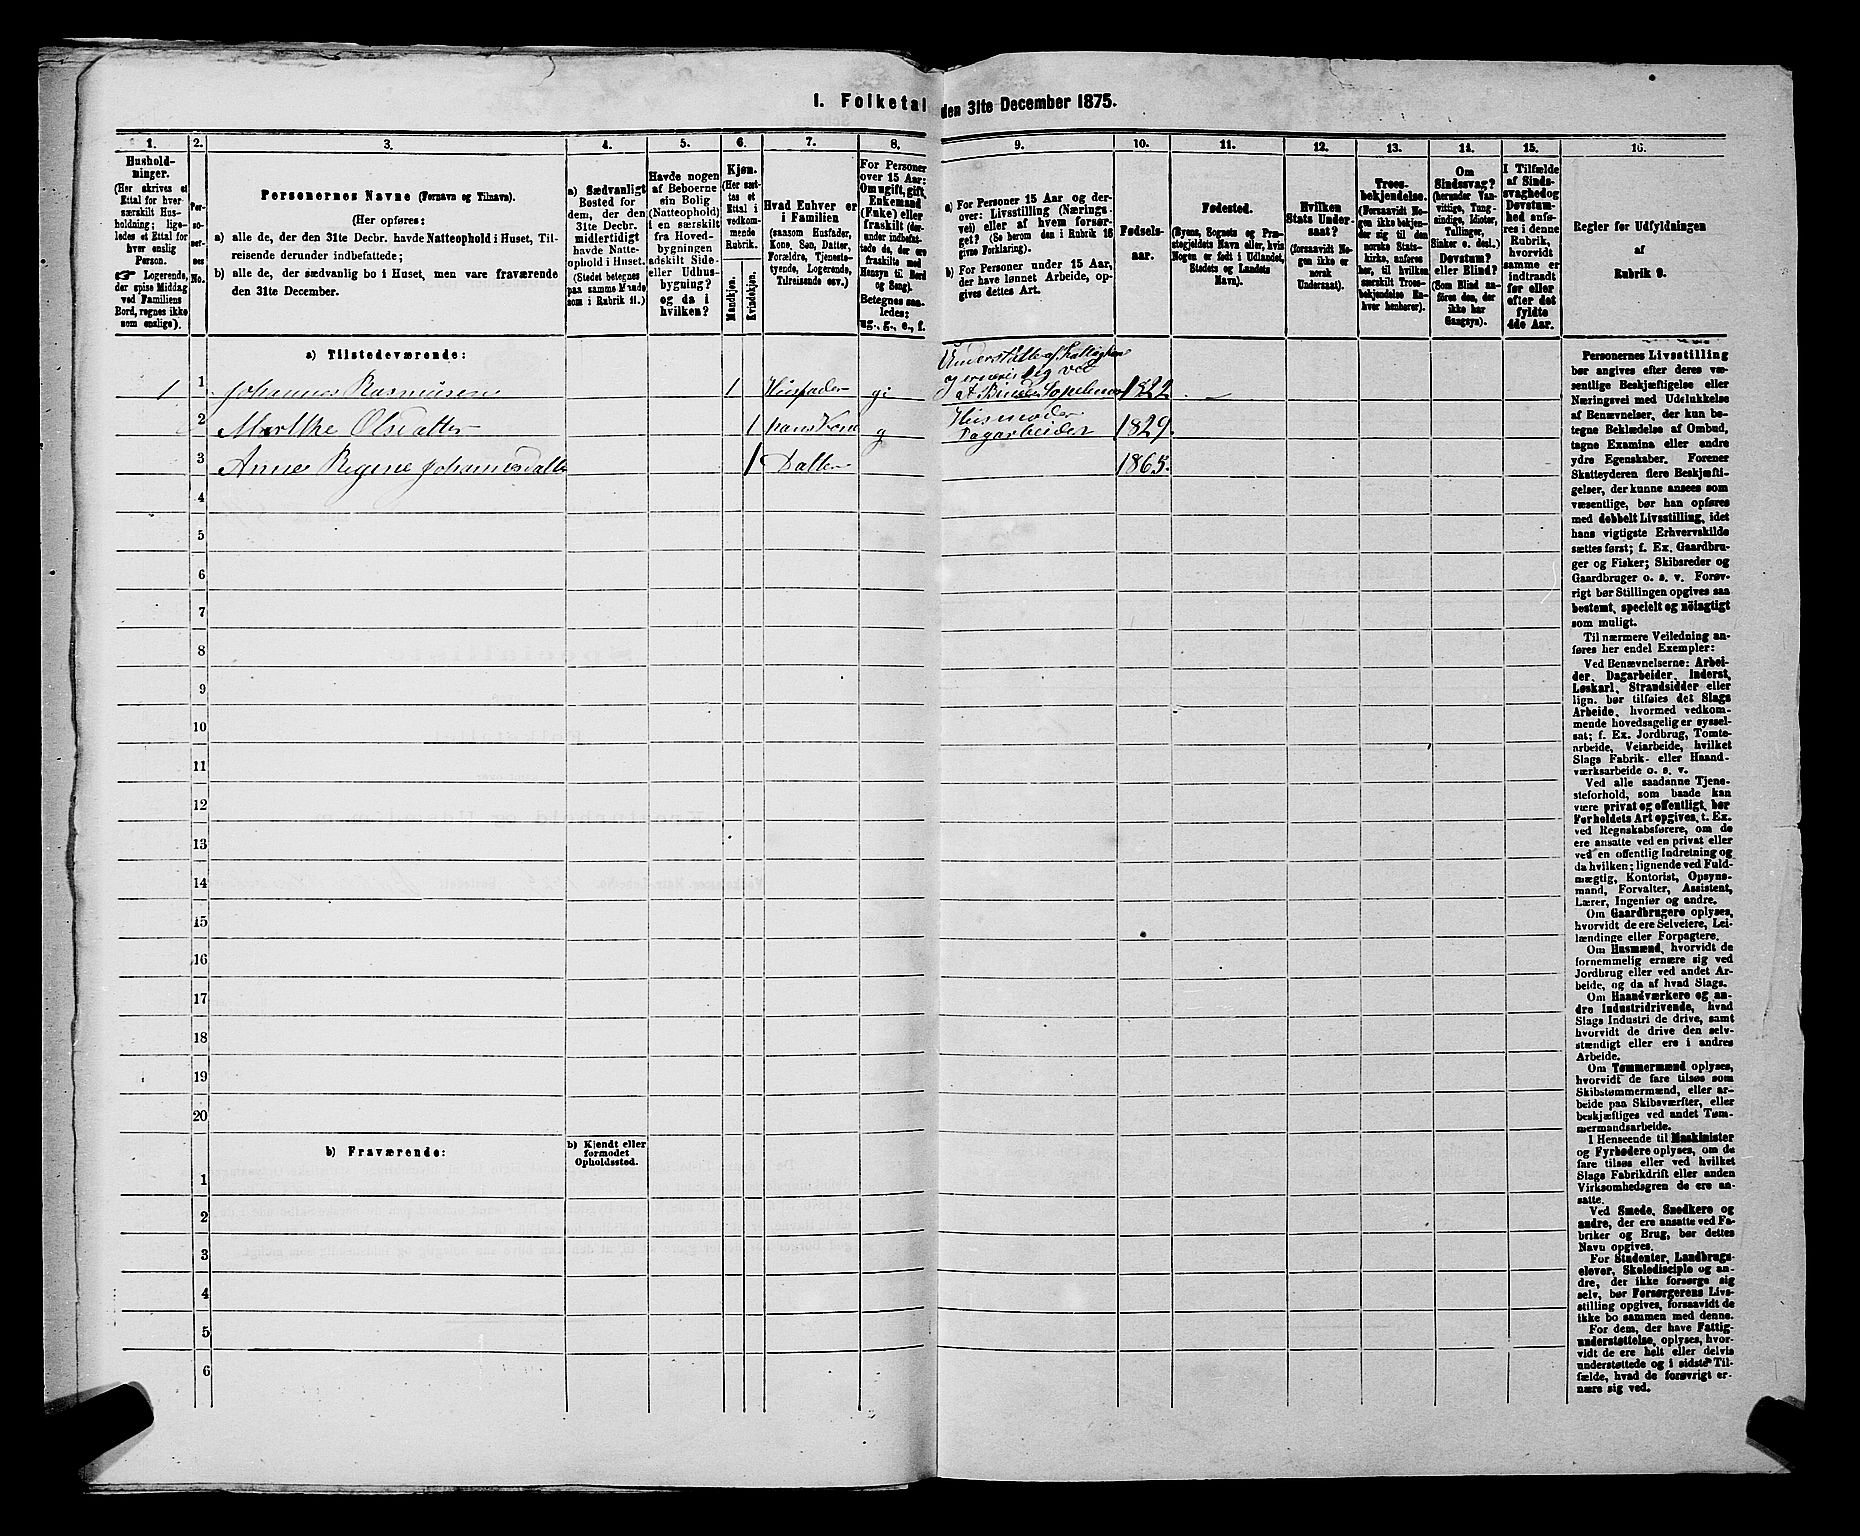 I. Folketal den 31te December 1875.
1. 2. 3. 4. 5. 6. 7. 8. 9. 10. 11. 12. 13. 14. 15. 16.
Hushold-
ninger.
(Her skrives et
Ettal for hver
særskilt Hus-
holdning; lige-
ledes et Ettal for
hver enslig
Person.
☞ Logerende,
der spise Middag
ved Familiens
Bord, regnes ikke
som enslige).
Per-
so-
ner-
nes
No.
Personernes Navne (Fornavn og Tilnavn).
(Her opføres:
a) alle de, der den 31te Decbr. havde Natteophold i Huset, Til-
reisende derunder indbefattede;
b) alle de, der sædvanlig bo i Huset, men vare fraværende
den 31te December.
a) Sædvanligt
Bosted for
dem, der den
31te Decbr.
midlertidigt
havde Natte-
ophold i Huset.
(Stedet betegnes
paa samme Maade
som i Rubrik 11.)
Havde nogen
af Beboerne
sin Bolig
(Natteophold)
i en særskilt
fra Hoved-
bygningen
adskilt Side-
eller Udhus-
bygning?
og da i
hvilken?
Kjøn.
(Her sæt-
tes et
Ettal i
vedkom-
mende
Rubrik.
Mandkjøn.
Kvindekjøn.
Hvad Enhver er
i Familien
(saasom Husfader,
Kone, Søn, Datter,
Forældre, Tjeneste-
tyende, Logerende,
Tilreisende osv.)
For Personer
over 15 Aar:
Om ugift, gift,
Enkemand
(Enke) eller
fraskilt (der-
under indbefat-
tede de, der ere
fraskilte med
Hensyn til Bord
og Seng).
Betegnes saa-
ledes:
ug., g., e., f.
a) For Personer 15 Aar og der-
over: Livsstilling (Nærings-
vei) eller af hvem forsør-
get? (Se herom den i Rubrik 16
givne Forklaring).
b) For Personer under 15 Aar,
der have lønnet Arbeide, op-
gives dettes Art.
Fødsels-
aar.
Fødested.
(Byens, Sognets og Præ-
stegjeldets Navn eller, hvis
Nogen er født i Udlandet,
Stedets og Landets
Navn).
Hvilken
Stats Under-
saat?
(forsaavidt No-
gen ikke er
norsk
Undersaat).
Troes-
bekjendelse.
(Forsaavidt No-
gen ikke bekjen-
der sig til den
norske Stats-
kirke, anføres
her, til hvilken
særskilt Troes-
bekjendelse En-
hver henhører).
Om
Sindssvag?
(herunder Van-
vittige, Tung-
sindige, Idioter,
Tullinger,
Sinker o. desl.)
Døvstum?
eller Blind?
(Som Blind an-
føres den, der
ikke har
Gangsyn).
I Tilfælde
af Sinds-
svaghed og
Døvstum-
hed anfø-
res i denne
Rubrik,
hvorvidt
samme er
indtraadt
før eller
efter det
fyldte
4de Aar.
Regler for Udfyldningen
af
Rubrik 9.
a) Tilstedeværende:
1 1 Johannes Rasmusen 1 Husfader gi 1822
2 Marthe Olsdatter 1 hans Kone g Husmoder Dagarbeider 1829.
3 Anne Regine Johannesdatter 1 Datter 1865.
4
5
6
7
8
9
10
11
12
13
14
15
16
17
18
19
20
b) Fraværende:
b) Kjendt eller
formodet
Opholdssted.
1
2
3
4
5
6
Personernes Livsstilling
bør angives efter deres væ-
sentlige Beskjæftigelse eller
Næringsvei med Udelukkelse
af Benævnelser, der kun be-
tegne Beklædelse af Ombud,
tagne Examina eller andre
ydre Egenskaber. Forener
Skatteyderen flere Beskjæfti-
gelser, der kunne ansees som
væsentlige, bør han opføres
med dobbelt Livsstilling, idet
hans vigtigste Erhvervskilde
sættes først; f. Ex. Gaardbru-
ger og Fisker; Skibsreder og
Gaardbruger o. s. v. Forøv-
rigt bør Stillingen opgives saa
bestemt, specielt og nøiagtigt
som muligt.
Til nærmere Veiledning an-
føres her endel Exempler:
Ved Benævnelserne: Arbei-
der, Dagarbeider, Inderst,
Løskarl, Strandsidder eller
lign. bør tilføies det Slags
Arbeide, hvormed vedkom-
mende hovedsagelig er syssel-
sat; f. Ex. Jordbrug, Tomte-
arbeide, Veiarbeide, hvilket
Slags Fabrik- eller Haand-
værksarbeide o. s. v.
Ved alle saadanne Tjene-
steforhold, som baade kan
være privat og offentligt, bør
Forholdets Art opgives, t. Ex.
ved Regnskabsførere, om de
ere ansatte ved en privat eller
ved en offentlig Indretning og
da hvilken; lignende ved Fuld-
mægtig, Kontorist, Opsyns-
mand, Forvalter, Assistent,
Lærer, Ingeniør og andre.
Om Gaardbrugere oplyses,
hvorvidt de ere Selveiere, Lei-
lændinge eller Forpagtere.
Om Husmænd, hvorvidt de
fornemmelig ernære sig ved
Jordbrug eller ved andet Ar-
beide, og da af hvad Slags.
Om Haandværkere og an-
dre Industridrivende, hvad
Slags Industri de drive, samt
hvorvidt de drive den selv-
stændigt eller ere i andres
Arbeide.
Om Tømmermænd oplyses,
hvorvidt de fare tilsøs som
Skibstømmermænd, eller ar-
beide paa Skibsværfter, eller
beskjæftiges ved andet Tøm-
mermandsarbeide.
I Henseende til Maskinister
og Fyrbødere oplyses, om de
fare tilsøs eller ved hvilket
Slags Fabrikdrift eller anden
Virksomhedsgren de ere an-
satte.
Ved Smede, Snedkere og
andre, der ere ansatte ved Fa-
briker og Brug, bør dettes
Navn opgives.
For Studenter, Landbrugs-
elever, Skoledisciple og an-
dre, der ikke forsørge sig
selv, bør Forsørgerens Livs-
stilling opgives, forsaavidt de
ikke bo sammen med denne.
For dem, der have Fattig-
understøttelse, oplyses, hvor-
vidt de ere helt eller delvis
understøttede og i sidste Til-
fælde, hvad de forøvrigt er-
nære sig ved.